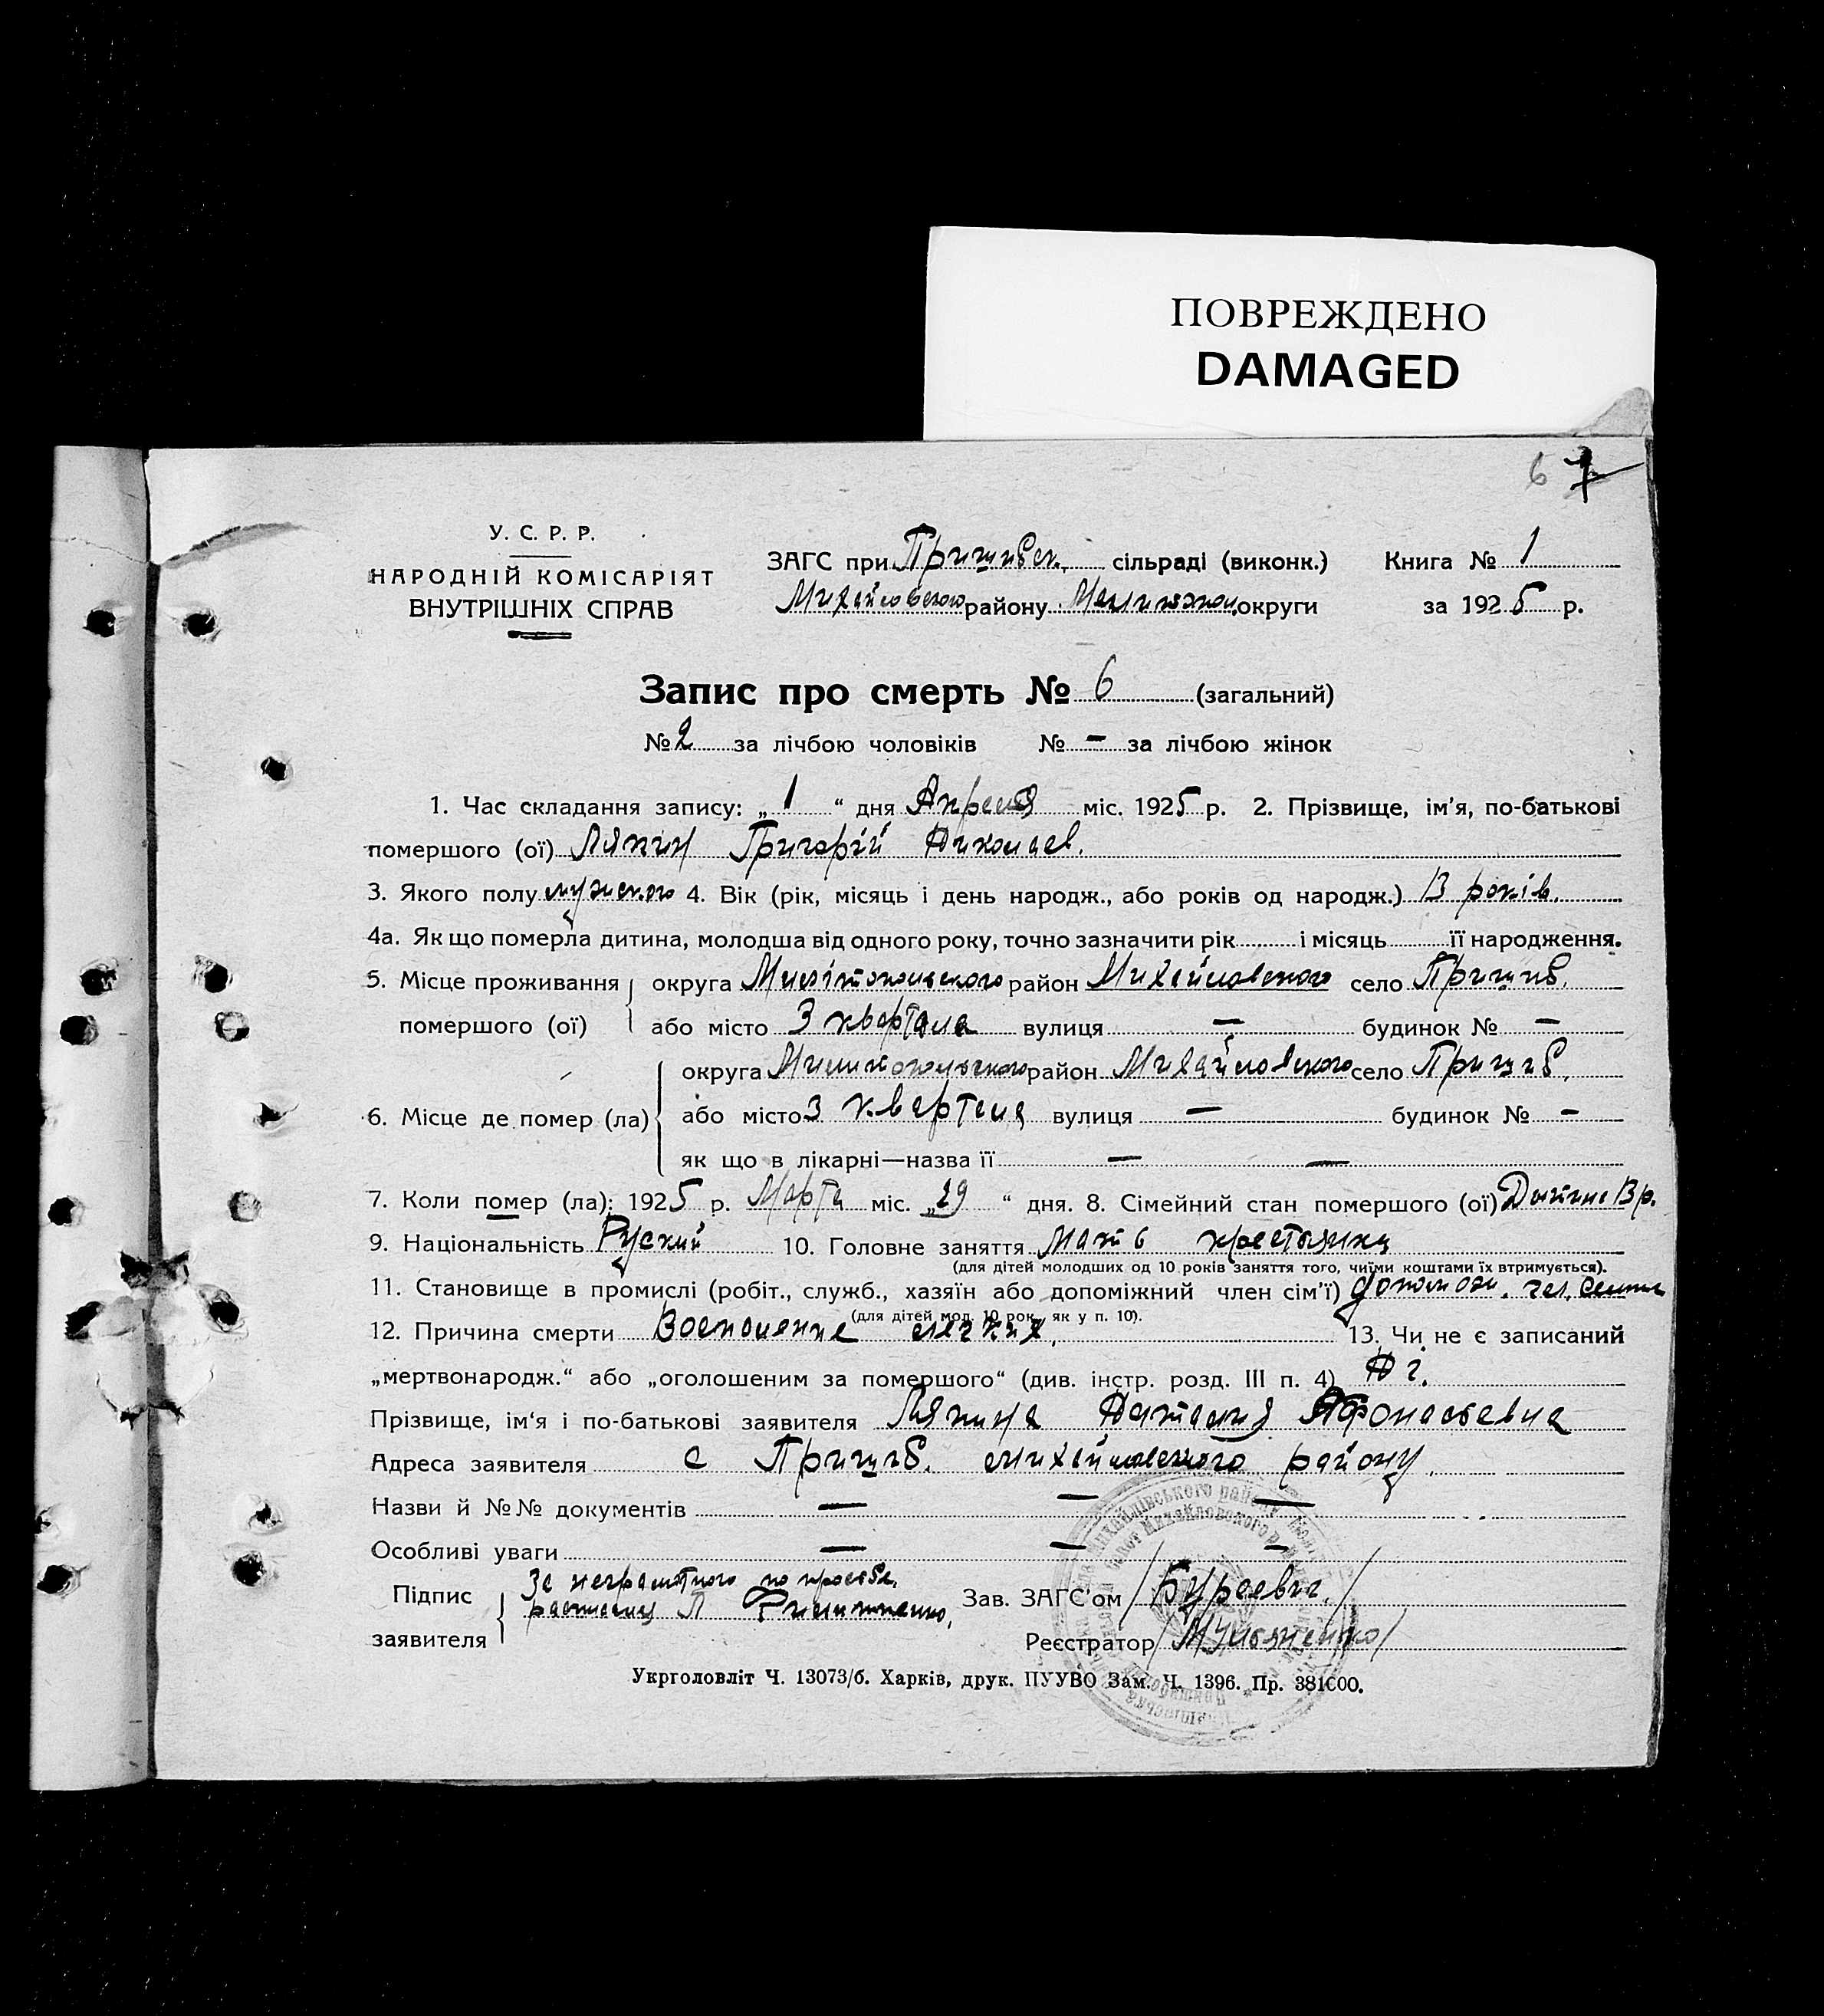 ПОВРЕЖДЕНО
DAMAGED
6 7
У. С. Р. Р.
НАРОДНІЙ КОМІСАРІЯТ
ВНУТРІШНІХ СПРАВ
ЗАГС при Пришибск. сільраді (виконк.) Книга № 1
Михайловского району округи за 1925 р.
Запис про смерть № 6 (загальний)
№ 2 за лічбою чоловіків № — за лічбою жінок
1. Час складання запису: „1“ дня Апреля міс. 1925 р. 2. Прізвище, ім’я, по-батькові
помершого (ої) Ляпин Григорій Николаев.
3. Якого полу мужского 4. Вік (рік, місяць і день народж., або років од народж.) 13 років.
4а. Як що померла дитина, молодша від одного року, точно зазначити рік і місяць її народження.
5. Місце проживання помершого (ої) округа Мелітопольского район Михайловского село Пришиб.
або місто 3 квартала вулиця — будинок № —
6. Місце де помер (ла) округа Мелитопольского район Михайловского село Пришиб.
або місто 3 квартала вулиця — будинок № —
як що в лікарні—назва її — —
7. Коли помер (ла): 1925 р. Марта міс. „29“ дня. 8. Сімейний стан помершого (ої) Дитина 13 р.
9. Національність Руский 10. Головне заняття Мать крестьянка
(для дітей молодших од 10 років заняття того, чиїми коштами їх втримується).
11. Становище в промислі (робіт., служб., хазяїн або допоміжний член сім’ї) допомож. чл. семьи
(для дітей мол. 10 рок. як у п. 10).
12. Причина смерти Воспаление легких. 13. Чи не є записаний
„мертвонародж.“ або „оголошеним за помершого“ (див. інстр. розд. III п. 4) Ні.
Прізвище, ім‘я і по-батькові заявителя Ляпина Наталия Афонасьевна
Адреса заявителя с Пришиб. Михайловского району.
Назви й №№ документів — — —
Особливі уваги — — —
Підпис заявителя За неграмотного по просьбе.
росписался П Филиппенко,
Зав. ЗАГС‘ом
Реєстратор
Укрголовліт Ч. 13073/б. Харків, друк. ПУУВО Зам. Ч. 1396. Пр. 381000.